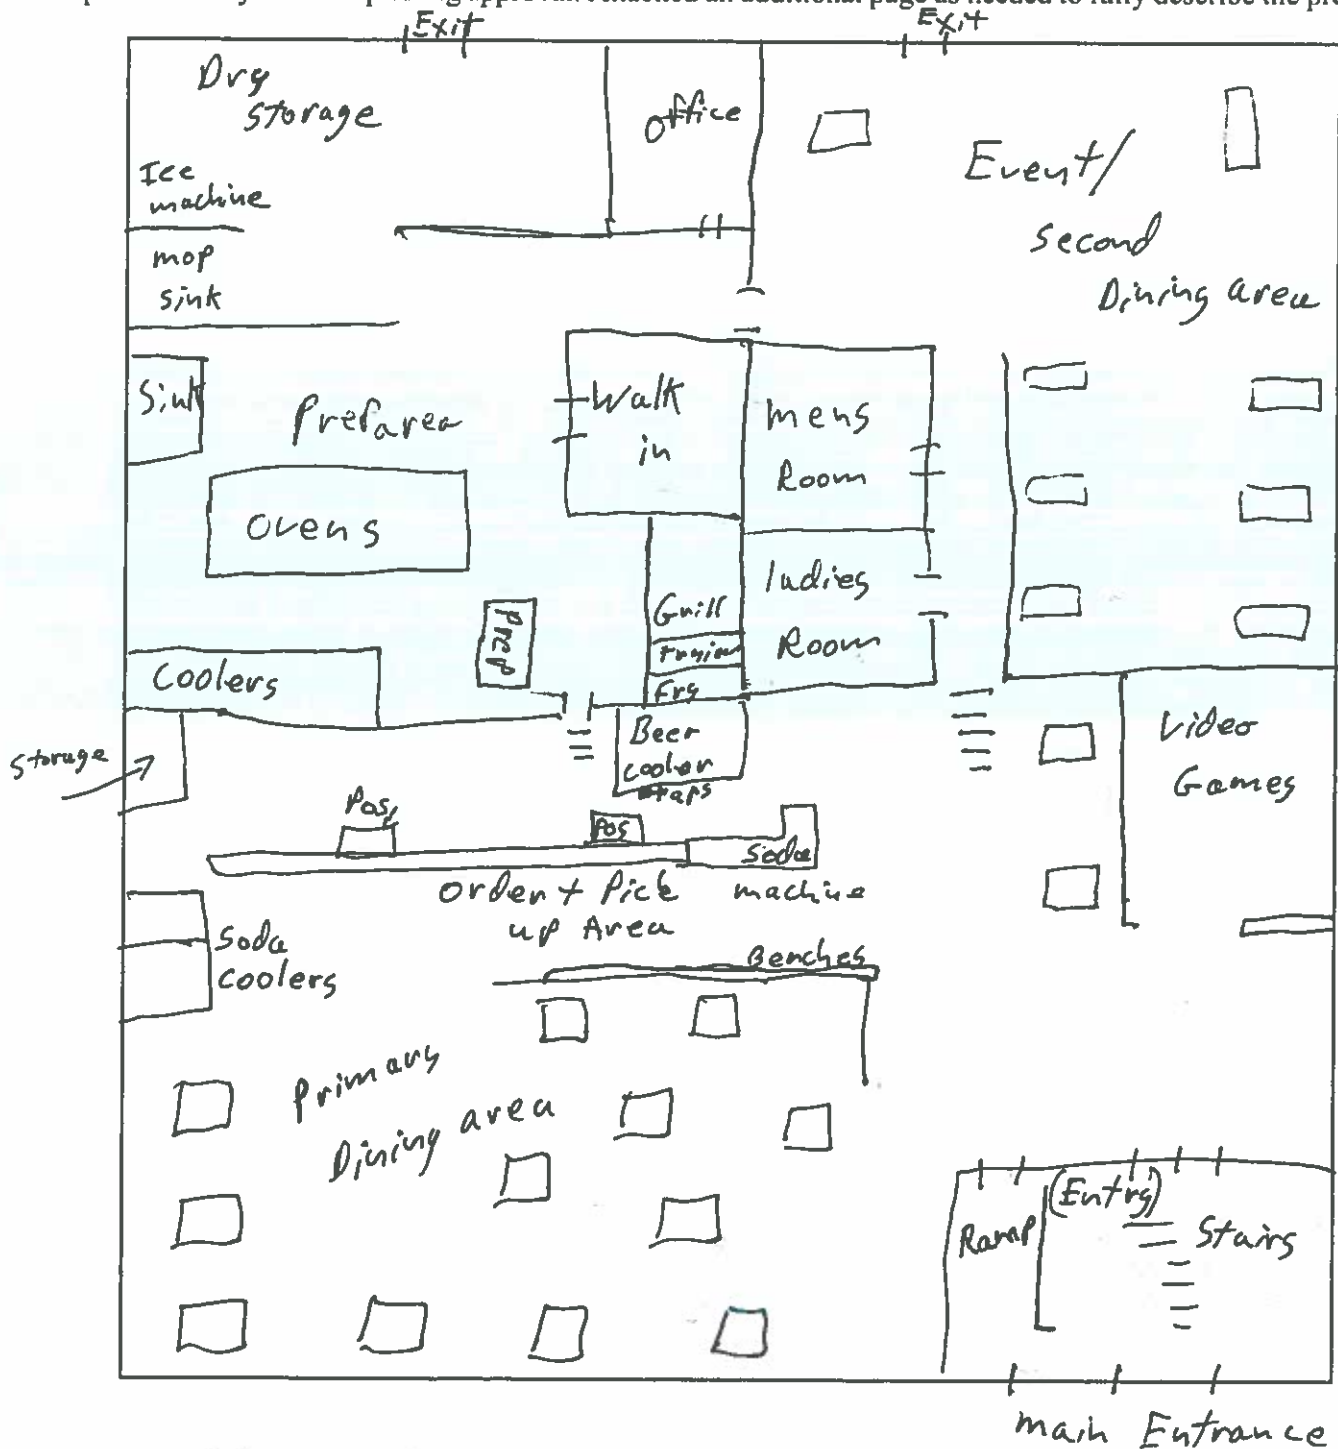 Exit
Exit
Dry
storage
office
Event/
second
Dining area
Ice
machine
mop
sink
Sink
Prep area
Walk
in
mens
Room
Ovens
ladies
Room
Prep
Grill
Fry
Coolers
Beer
cooler
taps
storage
Video
Games
Pos
Pos
Soda
machine
Order + Pick
up Area
Soda
coolers
Benches
Primary
Dining area
Ramp
(Entry)
Stairs
main Entrance